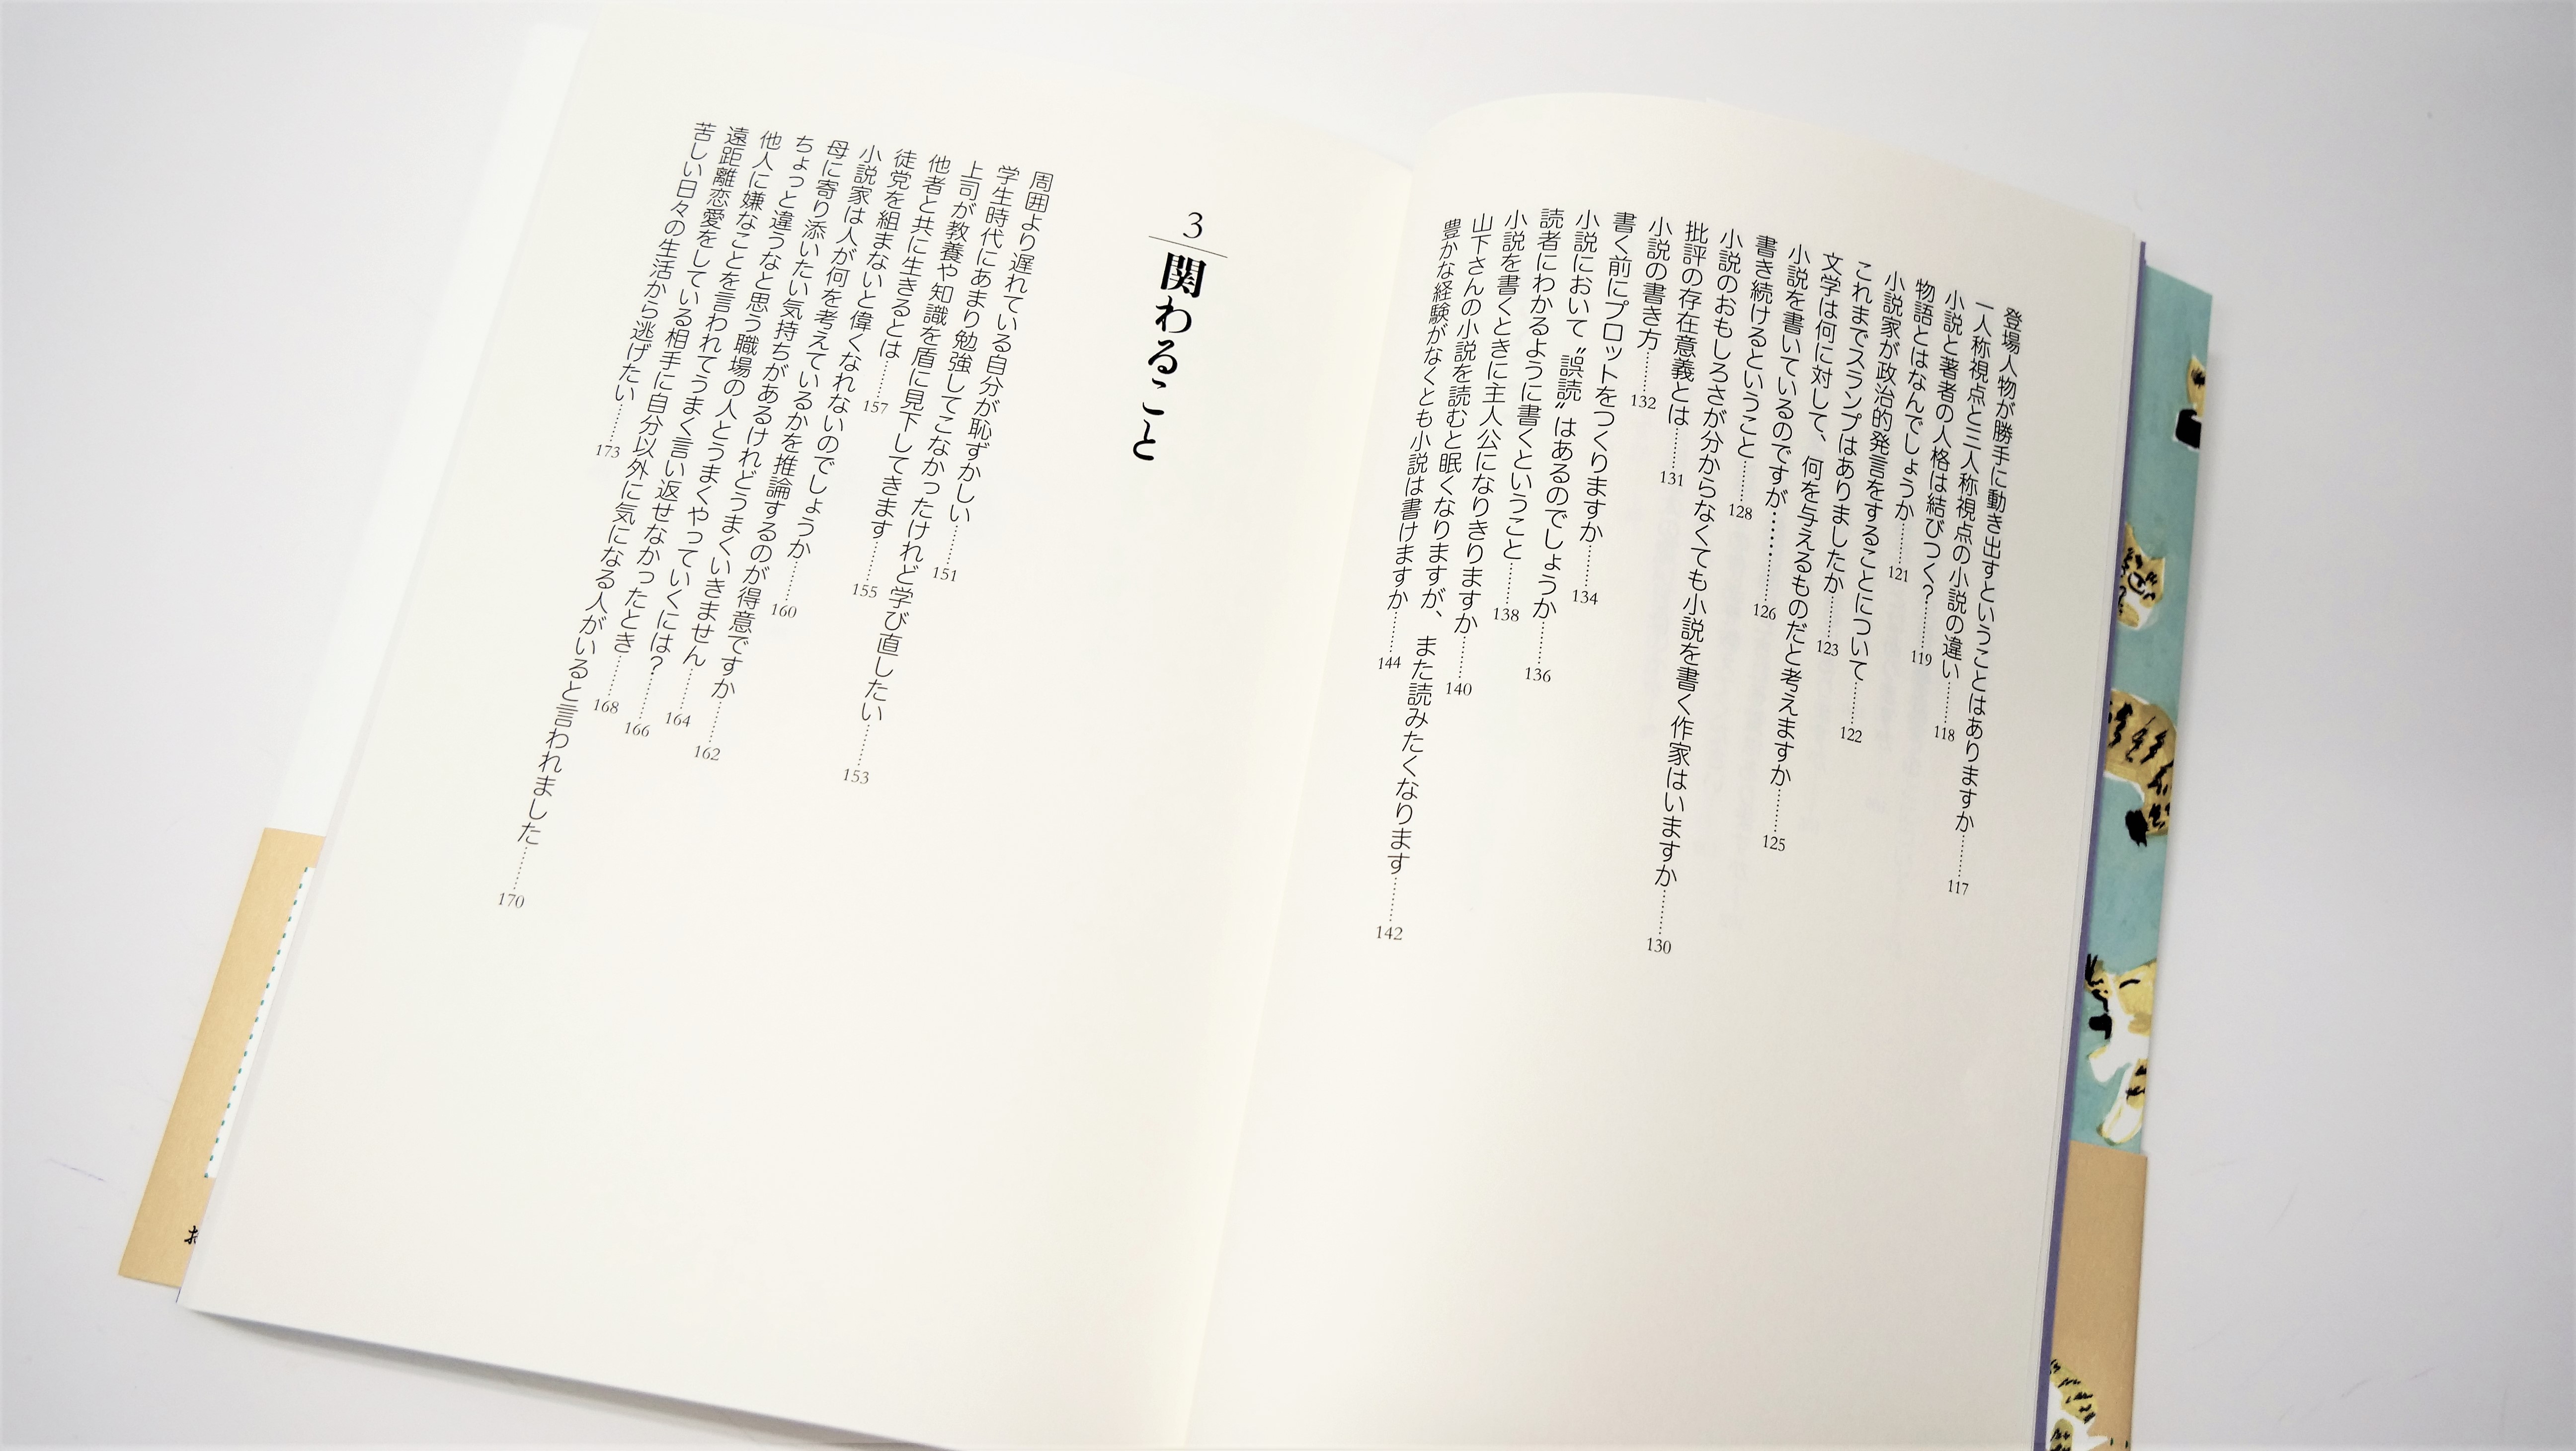 登場人物が勝手に動き出すということはありますか………117
一人称視点と三人称視点の小説の違い………118
小説と著者の人格は結びつく?………119
物語とはなんでしょうか………121
小説家が政治的発言をすることについて………122
これまでスランプはありましたか………123
文学は何に対して、何を与えるものだと考えますか………125
小説を書いているのですが………126
書き続けるということ………128
小説のおもしろさが分からなくても小説を書く作家はいますか………130
批評の存在意義とは………131
小説の書き方………132
書く前にプロットをつくりますか………134
小説において〝誤読〟はあるのでしょうか………136
読者にわかるように書くということ………138
小説を書くときに主人公になりきりますか………140
山下さんの小説を読むと眠くなりますが、また読みたくなります………142
豊かな経験がなくとも小説は書けますか………144
3 関わること
周囲より遅れている自分が恥ずかしい………151
学生時代にあまり勉強してこなかったけれど学び直したい………153
上司が教養や知識を盾に見下してきます………155
他者と共に生きるとは………157
徒党を組まないと偉くなれないのでしょうか………160
小説家は人が何を考えているかを推論するのが得意ですか………162
母に寄り添いたい気持ちがあるけれどうまくいきません………164
ちょっと違うなと思う職場の人とうまくやっていくには?………166
他人に嫌なことを言われてうまく言い返せなかったとき………168
遠距離恋愛をしている相手に自分以外に気になる人がいると言われました………170
苦しい日々の生活から逃げたい………173